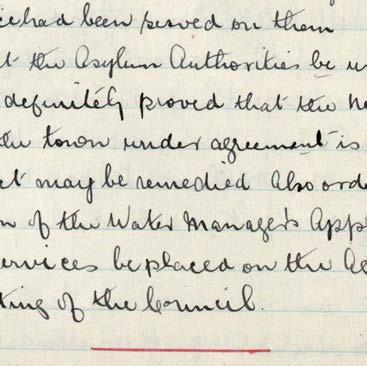 had been served on them
the Asylum Authorities be
definitely proved that the
the town under agreement is
may be remedied Also orde
of the Water Manager's App
ervices be placed on the Ag
ting of the Council.